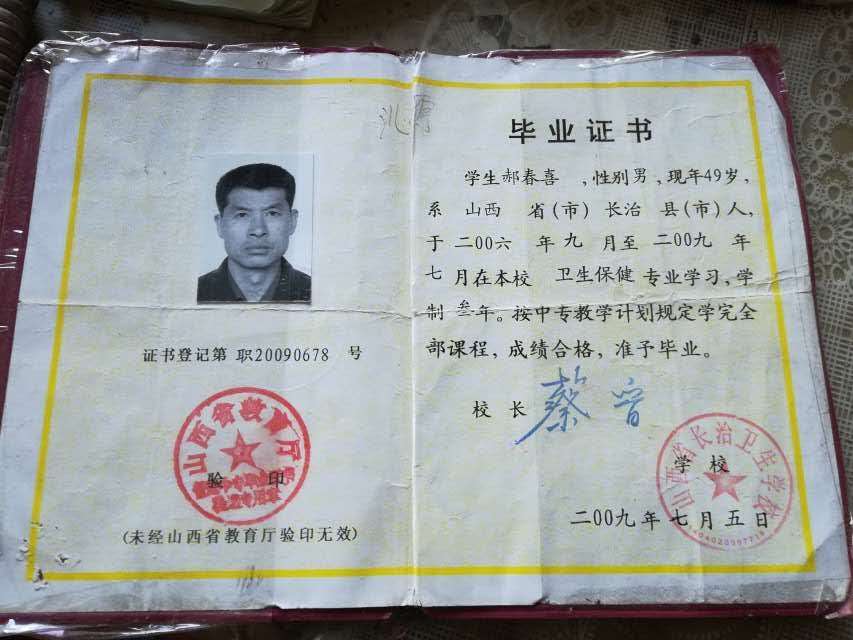 证书登记第 职20090678 号
山西省教育厅
验 印
(未经山西省教育厅验印无效)
毕业证书
学生郝春喜 ,性别男,现年49岁,
系 山西 省(市) 长治 县(市)人,
于二00六 年九 月至二00九 年
七月在本校 卫生保健 专业学习,学
制 叁年。按中专教学计划规定学完全
部课程,成绩合格,准予毕业。
校 长 蔡
山西省长治卫生学校
学 校
二00九年七月五日